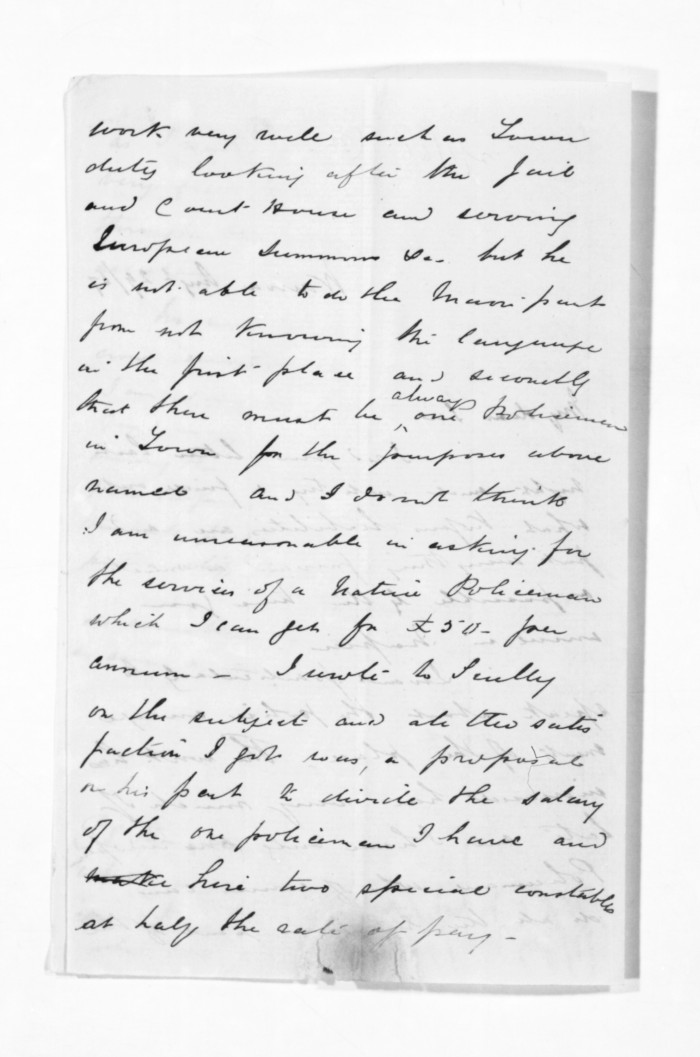 work very well such as Town
duty looking after the Jail
and Court House and serving
European Summons &c. but he
is not able to do the Maori part
from not knowing the language
in the first place and secondly
that there must be always one Policeman
in Town for the purposes above
named and I do not think
I am unreasonable in asking for
the services of a Native Policeman
which I can get for £50 - per
annum - I wrote to Scully
on the subject and all the satis
faction I got was, a proposal
on his part to divide the salary
of the one policeman I have and
hire two special constables
at half the rate of pay -